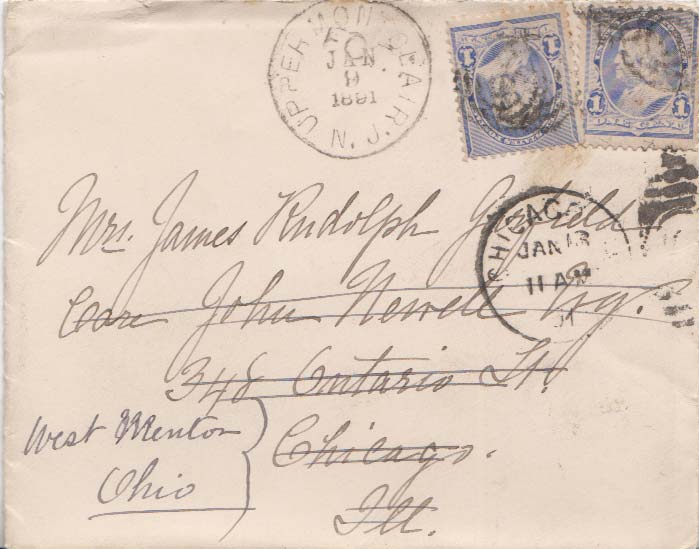 UPPER MONTCLAIR N.J.
JAN
9
1891
1
1
ONE CENT
CHICAGO
JAN 13
11 AM
91
Mrs. James Rudolph Garfield
Care John Newell Esq.
348 Ontario St.
Chicago.
Ill.
West Mentor
Ohio